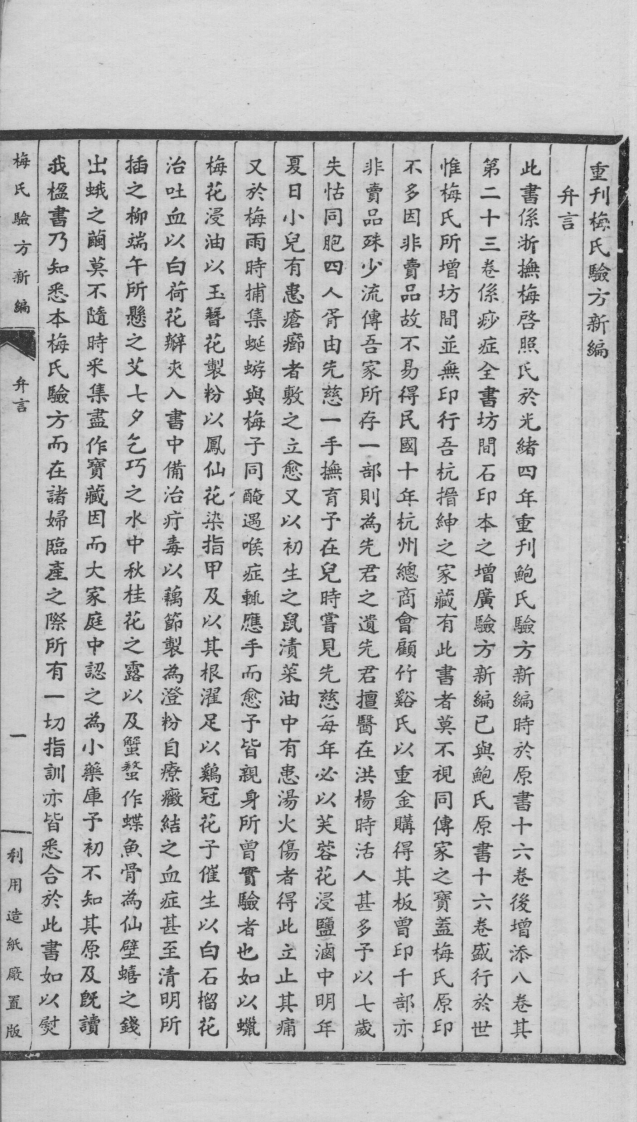 重刊梅氏驗方新編
弁言
此書係浙撫梅啓照氏於光緒四年重刊鮑氏驗方新編時於原書十六卷後增添八卷其
第二十三卷係痧症全書坊間石印本之增廣驗方新編已與鮑氏原書十六卷盛行於世
惟梅氏所增坊間並無印行吾杭搢紳之家藏有此書者莫不視同傳家之寶蓋梅氏原印
不多因非賣品故不易得民國十年杭州總商會顧竹谿氏以重金購得其板曾印千部亦
非賣品殊少流傳吾家所存一部則為先君之遺先君擅醫在洪楊時活人甚多予以七歲
失怙同胞四人胥由先慈一手撫育予在兒時嘗見先慈每年必以芙蓉花浸鹽滷中明年
夏日小兒有患瘡癤者敷之立愈又以初生之鼠漬菜油中有患湯火傷者得此立止其痛
又於梅雨時捕集蜒蝣與梅子同醃遇喉症輒應手而愈予皆親身所曾實驗者也如以蠟
梅花浸油以玉簪花製粉以鳳仙花染指甲及以其根濯足以鷄冠花子催生以白石榴花
治吐血以白荷花瓣夾入書中備治疔毒以藕節製為澄粉自療癥結之血症甚至清明所
插之柳端午所懸之艾七夕乞巧之水中秋桂花之露以及蟹螯作蝶魚骨為仙壁蟢之錢
出蛾之繭莫不隨時采集盡作寶藏因而大家庭中認之為小藥庫予初不知其原及既讀
我楹書乃知悉本梅氏驗方而在諸婦臨產之際所有一切指訓亦皆悉合於此書如以熨
梅氏驗方新編
弁言
一
利用造紙廠置版